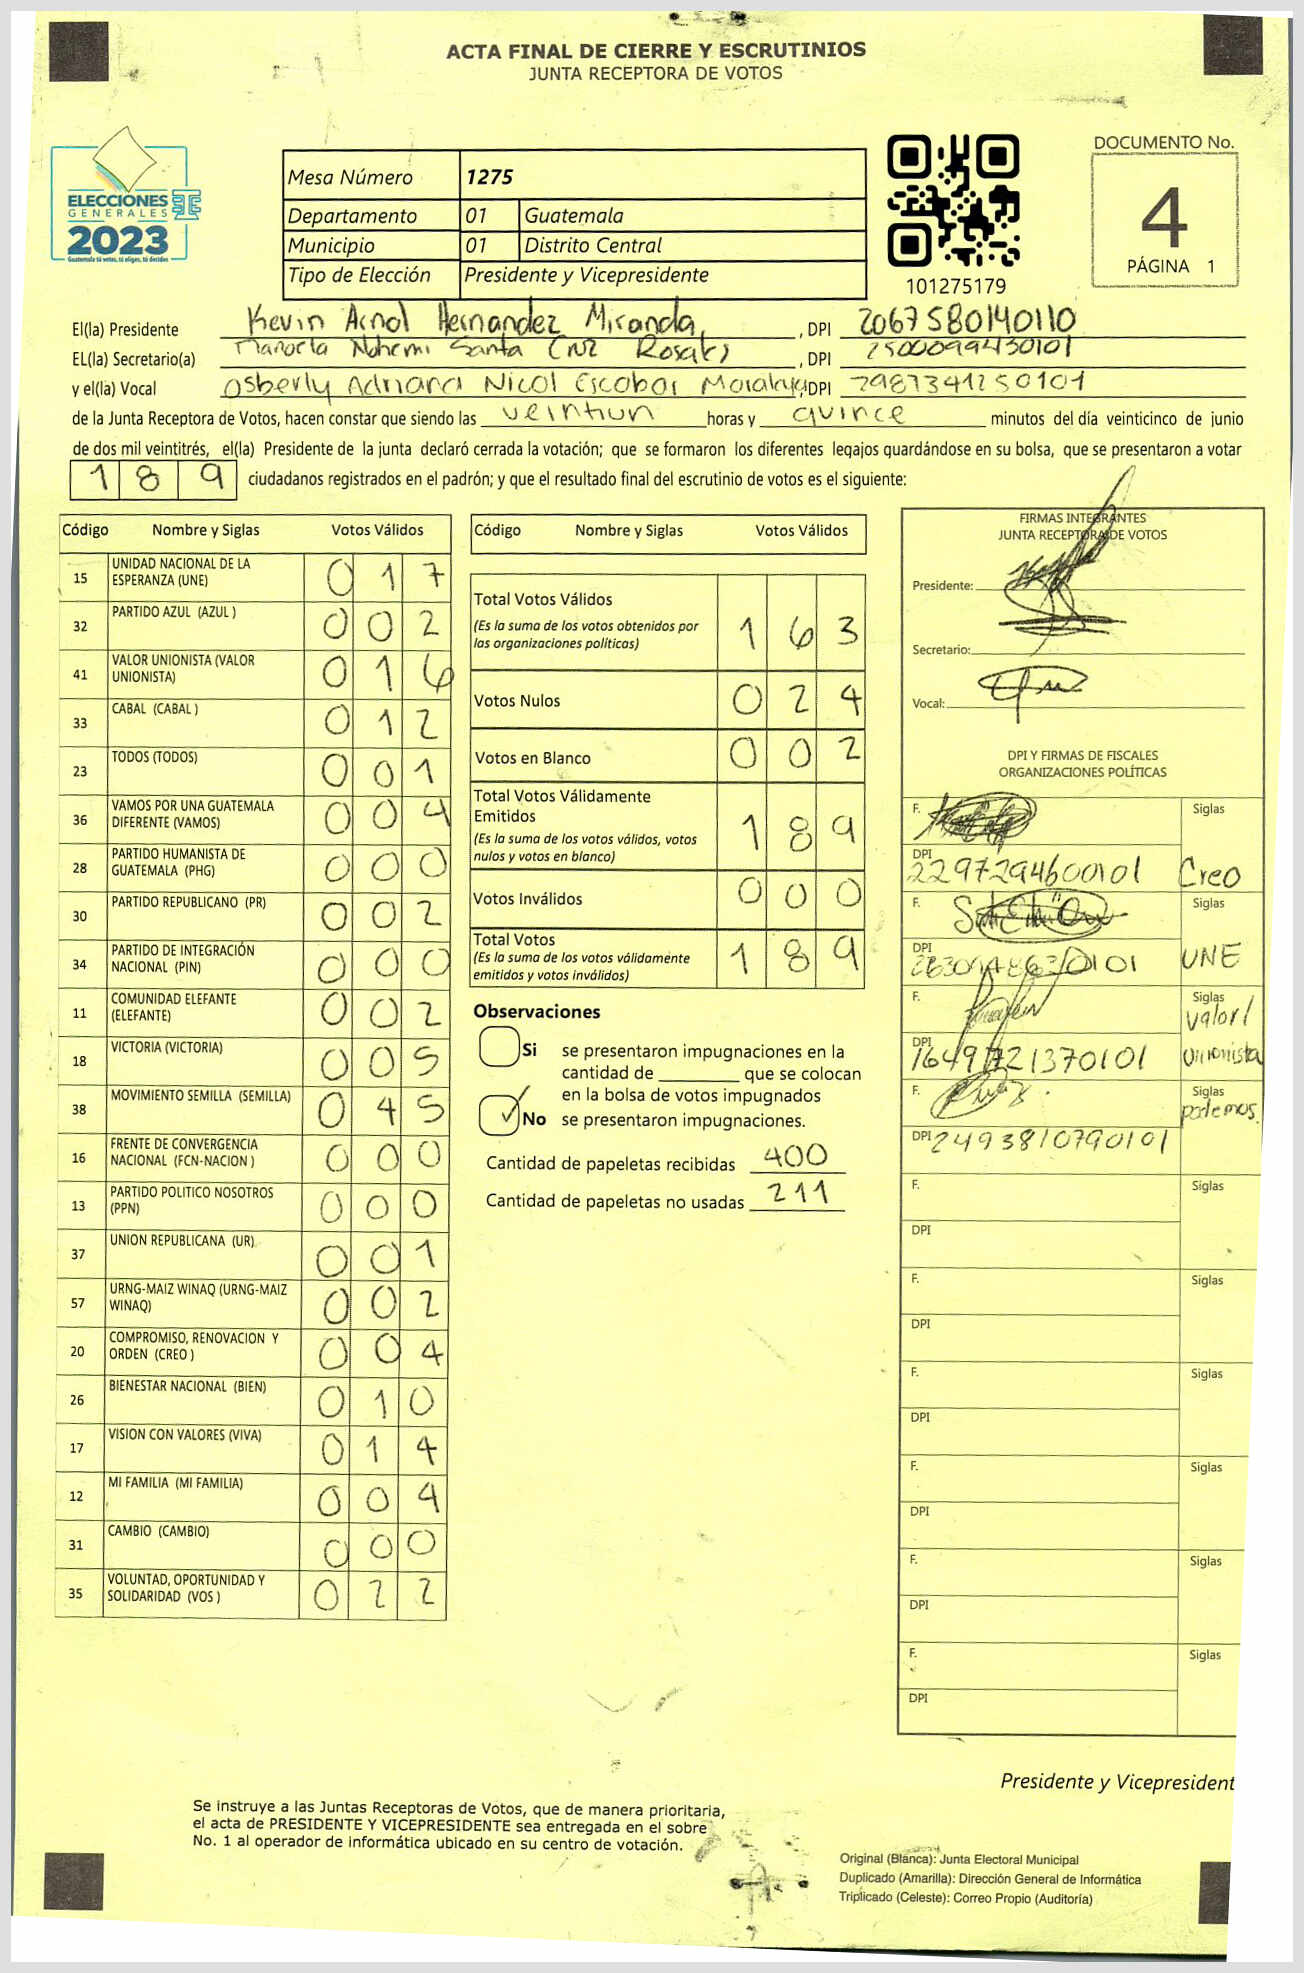 ACTA FINAL DE CIERRE Y ESCRUTINIOS
JUNTA RECEPTORA DE VOTOS
ELECCIONES
GENERALES
2023
Guatemala tú votes, tú eliges, tú decides
Mesa Número 1275
Departamento 01 Guatemala
Municipio 01 Distrito Central
Tipo de Elección Presidente y Vicepresidente
101275179
DOCUMENTO No.
4
PÁGINA 1
El(la) Presidente Kevin Arnol Hernandez Miranda, DPI 2067580140110
EL(la) Secretario(a) Nohemi Santa Cruz Rosales, DPI 2500099430101
y el(la) Vocal Osberly Adriana Nicol Escobar, DPI 2987341250101
de la Junta Receptora de Votos, hacen constar que siendo las veintiun horas y quince minutos del día veinticinco de junio
de dos mil veintitrés, el(la) Presidente de la junta declaró cerrada la votación; que se formaron los diferentes legajos guardándose en su bolsa, que se presentaron a votar
189 ciudadanos registrados en el padrón; y que el resultado final del escrutinio de votos es el siguiente:
Código Nombre y Siglas Votos Válidos
15 UNIDAD NACIONAL DE LA ESPERANZA (UNE) 017
32 PARTIDO AZUL (AZUL ) 002
41 VALOR UNIONISTA (VALOR UNIONISTA) 016
33 CABAL (CABAL ) 012
23 TODOS (TODOS) 001
36 VAMOS POR UNA GUATEMALA DIFERENTE (VAMOS) 004
28 PARTIDO HUMANISTA DE GUATEMALA (PHG) 000
30 PARTIDO REPUBLICANO (PR) 002
34 PARTIDO DE INTEGRACIÓN NACIONAL (PIN) 000
11 COMUNIDAD ELEFANTE (ELEFANTE) 002
18 VICTORIA (VICTORIA) 005
38 MOVIMIENTO SEMILLA (SEMILLA) 045
16 FRENTE DE CONVERGENCIA NACIONAL (FCN-NACION ) 000
13 PARTIDO POLITICO NOSOTROS (PPN) 000
37 UNION REPUBLICANA (UR) 001
57 URNG-MAIZ WINAQ (URNG-MAIZ WINAQ) 002
20 COMPROMISO, RENOVACION Y ORDEN (CREO ) 004
26 BIENESTAR NACIONAL (BIEN) 010
17 VISION CON VALORES (VIVA) 014
12 MI FAMILIA (MI FAMILIA) 004
31 CAMBIO (CAMBIO) 000
35 VOLUNTAD, OPORTUNIDAD Y SOLIDARIDAD (VOS ) 022
Código Nombre y Siglas Votos Válidos
Total Votos Válidos 163
(Es la suma de los votos obtenidos por
las organizaciones políticas)
Votos Nulos 024
Votos en Blanco 002
Total Votos Válidamente
Emitidos 189
(Es la suma de los votos válidos, votos
nulos y votos en blanco)
Votos Inválidos 000
Total Votos 189
(Es la suma de los votos válidamente
emitidos y votos inválidos)
Observaciones
Si se presentaron impugnaciones en la
cantidad de ________ que se colocan
en la bolsa de votos impugnados
No se presentaron impugnaciones.
Cantidad de papeletas recibidas 400
Cantidad de papeletas no usadas 211
FIRMAS INTEGRANTES
JUNTA RECEPTORA DE VOTOS
Presidente:
Secretario:
Vocal:
DPI Y FIRMAS DE FISCALES
ORGANIZACIONES POLÍTICAS
F. Siglas
DPI 2297294600101 Creo
F. Siglas
DPI UNE
F. Siglas
Valor/
DPI 1649721370101 Unionista
F. Siglas
podemos
DPI 2493810790101
F. Siglas
DPI
F. Siglas
DPI
F. Siglas
DPI
F. Siglas
DPI
F. Siglas
DPI
F. Siglas
DPI
Presidente y Vicepresident
Se instruye a las Juntas Receptoras de Votos, que de manera prioritaria,
el acta de PRESIDENTE Y VICEPRESIDENTE sea entregada en el sobre
No. 1 al operador de informática ubicado en su centro de votación.
Original (Blanca): Junta Electoral Municipal
Duplicado (Amarilla): Dirección General de Informática
Triplicado (Celeste): Correo Propio (Auditoría)